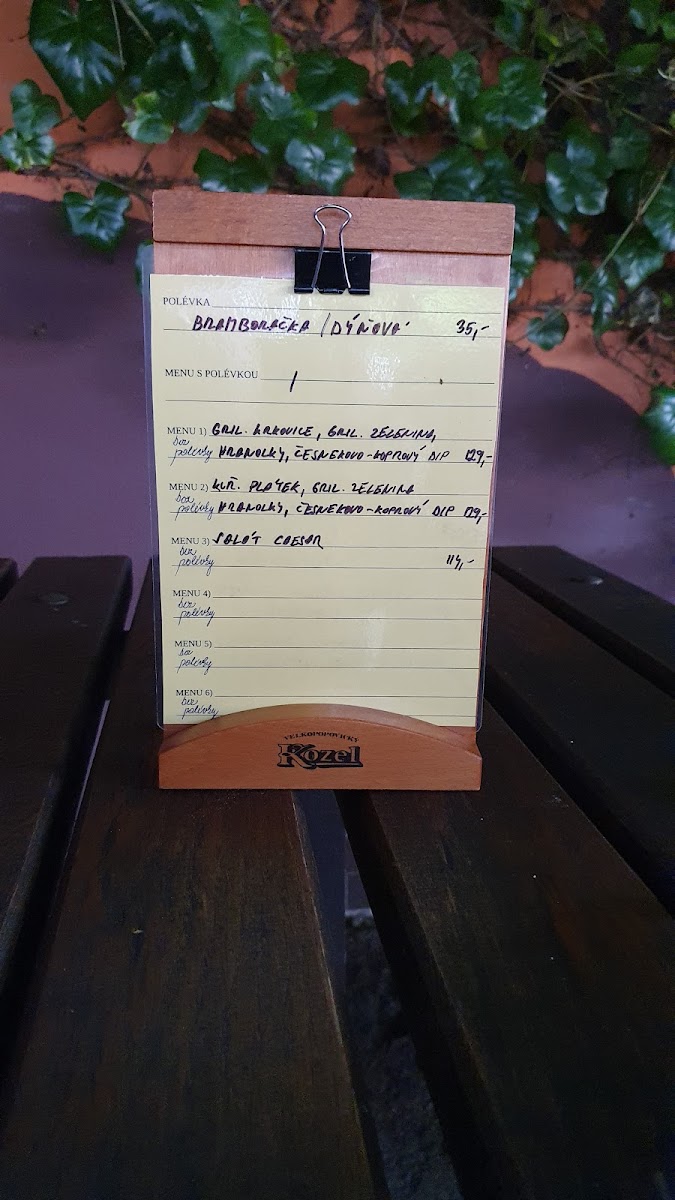 POLÉVKA
BRAMBORAČKA / DÝŇOVÁ 35,-
MENU S POLÉVKOU /
MENU 1) GRIL. KRKOVICE, GRIL. ZELENINA,
bez polévky HRANOLKY, ČESNEKOVO-KOPROVÝ DIP 129,-
MENU 2) KUŘ. PLÁTEK, GRIL. ZELENINA
bez polévky HRANOLKY, ČESNEKOVO-KOPROVÝ DIP 129,-
MENU 3) SALÁT CAESAR
bez polévky 114,-
MENU 4)
bez polévky
MENU 5)
bez polévky
MENU 6)
bez polévky
VELKOPOPOVICKÝ
Kozel